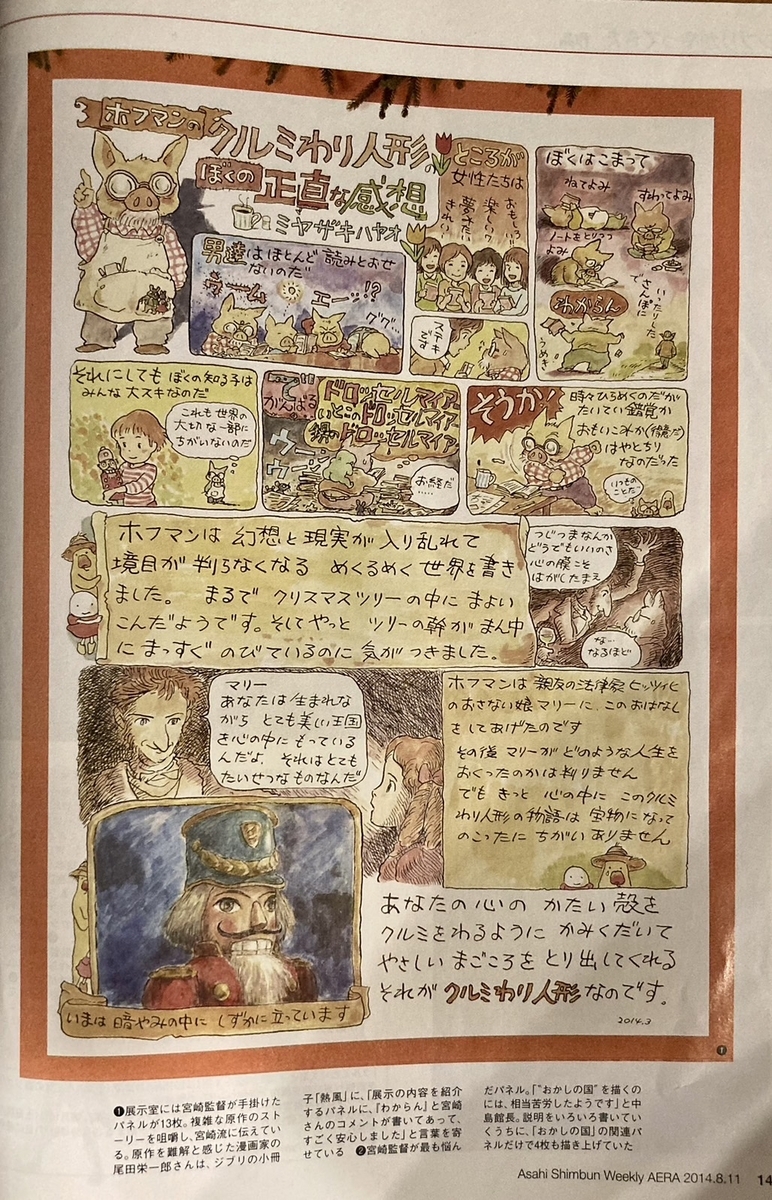 ホフマンの
クルミわり人形の
ぼくの
正直な感想
ミヤザキハヤオ
男達はほとんど読みとおせ
ないのだ
ウーム
エーッ!?
ググ…
ところが
女性たちは
おもしろい
楽しい
夢みたい
きれい
ステキ
です
ぼくはこまって
ねてよみ
すわってよみ
ノートをとりつつ
よみ
いったりした
さんぽに
でき
わからん
うめき
それにしても ぼくの知る子は
みんな大スキなのだ
これも世界の
大切な一部に
ちがいないのだ
で
がんばる
ドロッセルマイアー
いとこのドロッセルマイアー
甥のドロッセルマイアー
ウーン
ウーン
お経だ
……
そうか!
時々ひらめくのだが
たいてい錯覚か
おもいこみか(徹夜だ)
はやとちり
なのだった
いつもの
ことだ
ホフマンは 幻想と現実が入り乱れて
境目が判らなくなる めくるめく世界を書き
ました。 まるで クリスマスツリーの中に まよい
こんだようです。そして やっと ツリーの幹が まん中
に まっすぐ のびているのに 気がつきました。
つじつまなんか
どうでもいいのさ
心の膜こそ
はがしたまえ
な…
なるほど
マリー
あなたは生まれな
がら とても美しい王国
を心の中にもっている
んだよ、それはとても
たいせつなものなんだ
ホフマンは 親友の法律家ヒッツィヒ
のおさない娘マリーに、このおはなし
をしてあげたのです
その後 マリーが どのような人生を
おくったのかは判りません
でも きっと 心の中に このクルミ
わり人形の物語は 宝物になって
のこったに ちがいありません
いまは 暗やみの中に しずかに立っています
あなたの心の かたい殻を
クルミをわるように かみくだいて
やさしい まごころを とり出してくれる
それが クルミわり人形なのです。
2014.3
❶
❶展示室には宮崎監督が手掛けた
パネルが13枚。複雑な原作のスト
ーリーを咀嚼し、宮崎流に伝えてい
る。原作を難解と感じた漫画家の
尾田栄一郎さんは、ジブリの小冊
子「熱風」に、「展示の内容を紹介
するパネルに、『わからん』と宮崎
さんのコメントが書いてあって、
すごく安心しました」と言葉を寄
せている ❷宮崎監督が最も悩ん
だパネル。「“おかしの国”を描くの
には、相当苦労したようです」と中
島館長。説明をいろいろ書いてい
くうちに、「おかしの国」の関連パ
ネルだけで4枚も描き上げていた
Asahi Shimbun Weekly AERA 2014.8.11
14